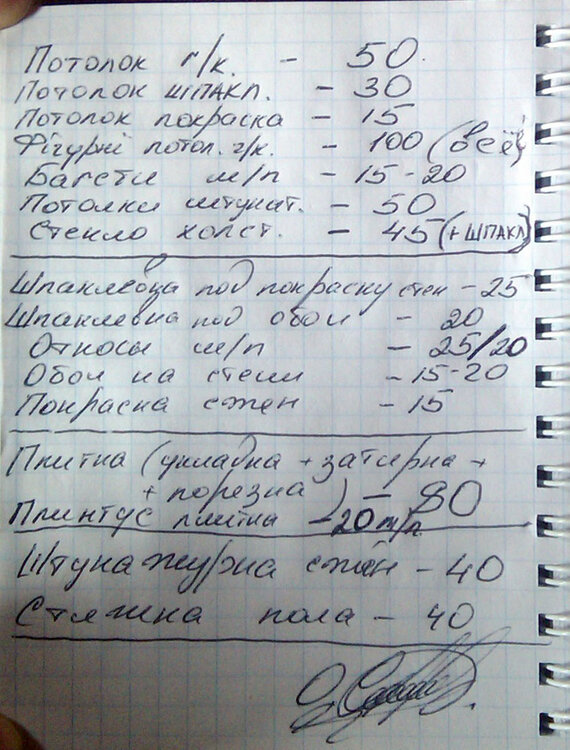 Потолок г/к. - 50.
Потолок шпакл. - 30
Потолок покраска - 15
Фігурні потол. г/к. - 100 (всё)
Багети м/п - 15-20
Потолки штукат. - 50
Стекло холст. - 45 (+ шпакл)
Шпаклевка под покраску стен - 25
Шпаклевка под обои - 20
Откосы м/п - 25/20
Обои на стены - 15-20
Покраска стен - 15
Плитка (укладка + затирка +
+ порезка) - 80
Плинтус плитка - 20 м/п.
Штукатурка стен - 40
Стяжка пола - 40